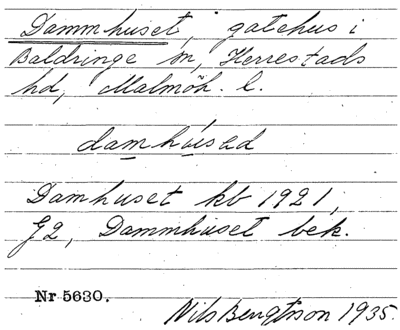 Dammhuset, gatehus i
Baldringe sn, Herrestads
hd, Malmöh. l.
damhúsəd
Damhuset kb 1921,
G2, Dammhuset bek.
Nr 5630.
Nils Bengtsson 1935.